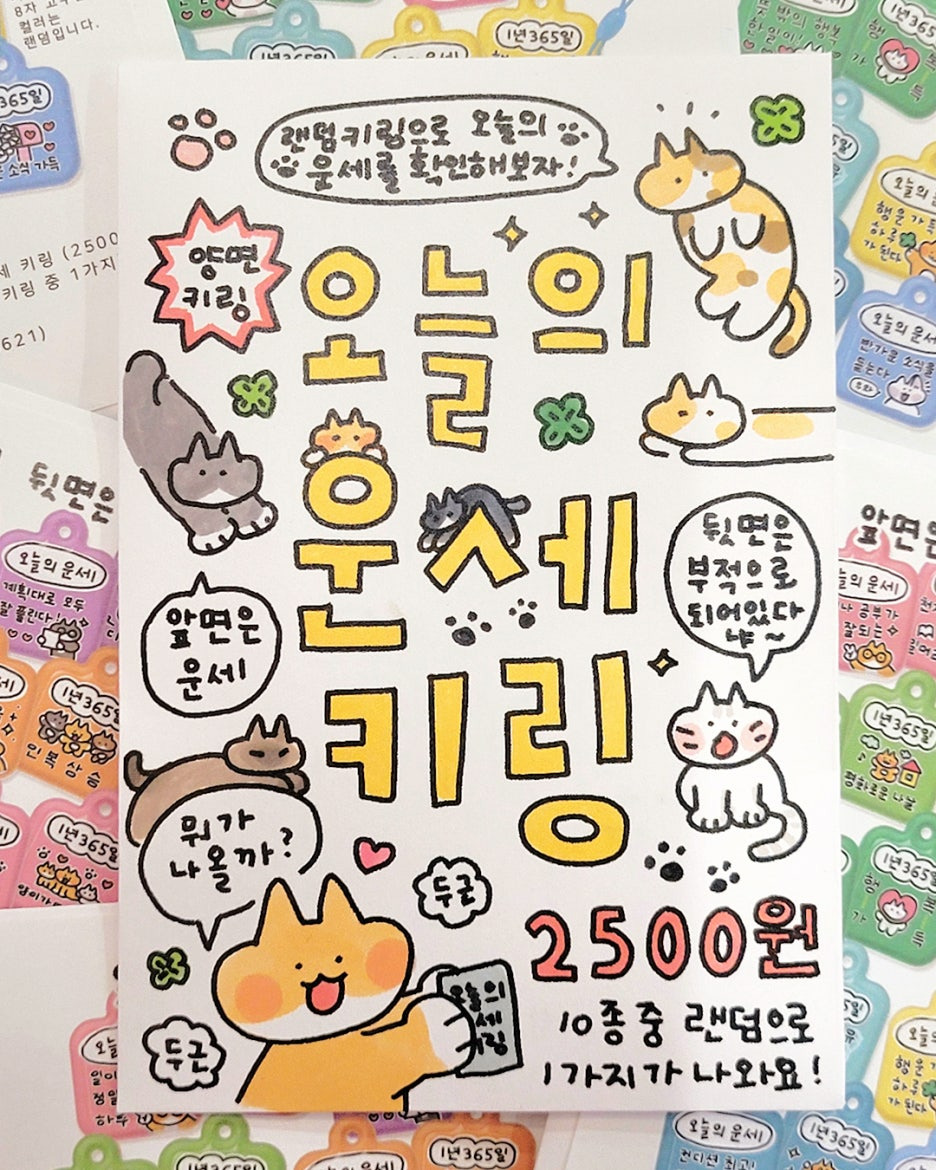 8자 고
컬러는
랜덤입니다.
1년365일
오늘의 운세
1년365일
랜덤키링으로 오늘의
운세를 확인해보자!
양면
키링
오늘의
운세
키링
앞면은
운세
뒷면은
부적으로
되어있다
냐~
뭐가
나올까?
두근
두근
오늘의
세
키링
2500원
10종 중 랜덤으로
1가지가 나와요!
365일
소식 가득
세 키링 (2500
키링 중 1가지
621)
뒷면은
오늘의 운세
계획대로 모두
잘 풀린다!
1년365일
인복상승
1년365일
일이
하루
행
복
가
득
1년365일
오늘의
행운가득
하루
가 된다
오늘의 운세
반가운 소식을
듣는다
앞면은
공부가
잘되는
1년365일
평화로운 나날
1년365일
행
복
가
득
행운
하루
가 된다
오늘의 운세
컨디션 최고!
1년365일
오늘의 운세
1년365일